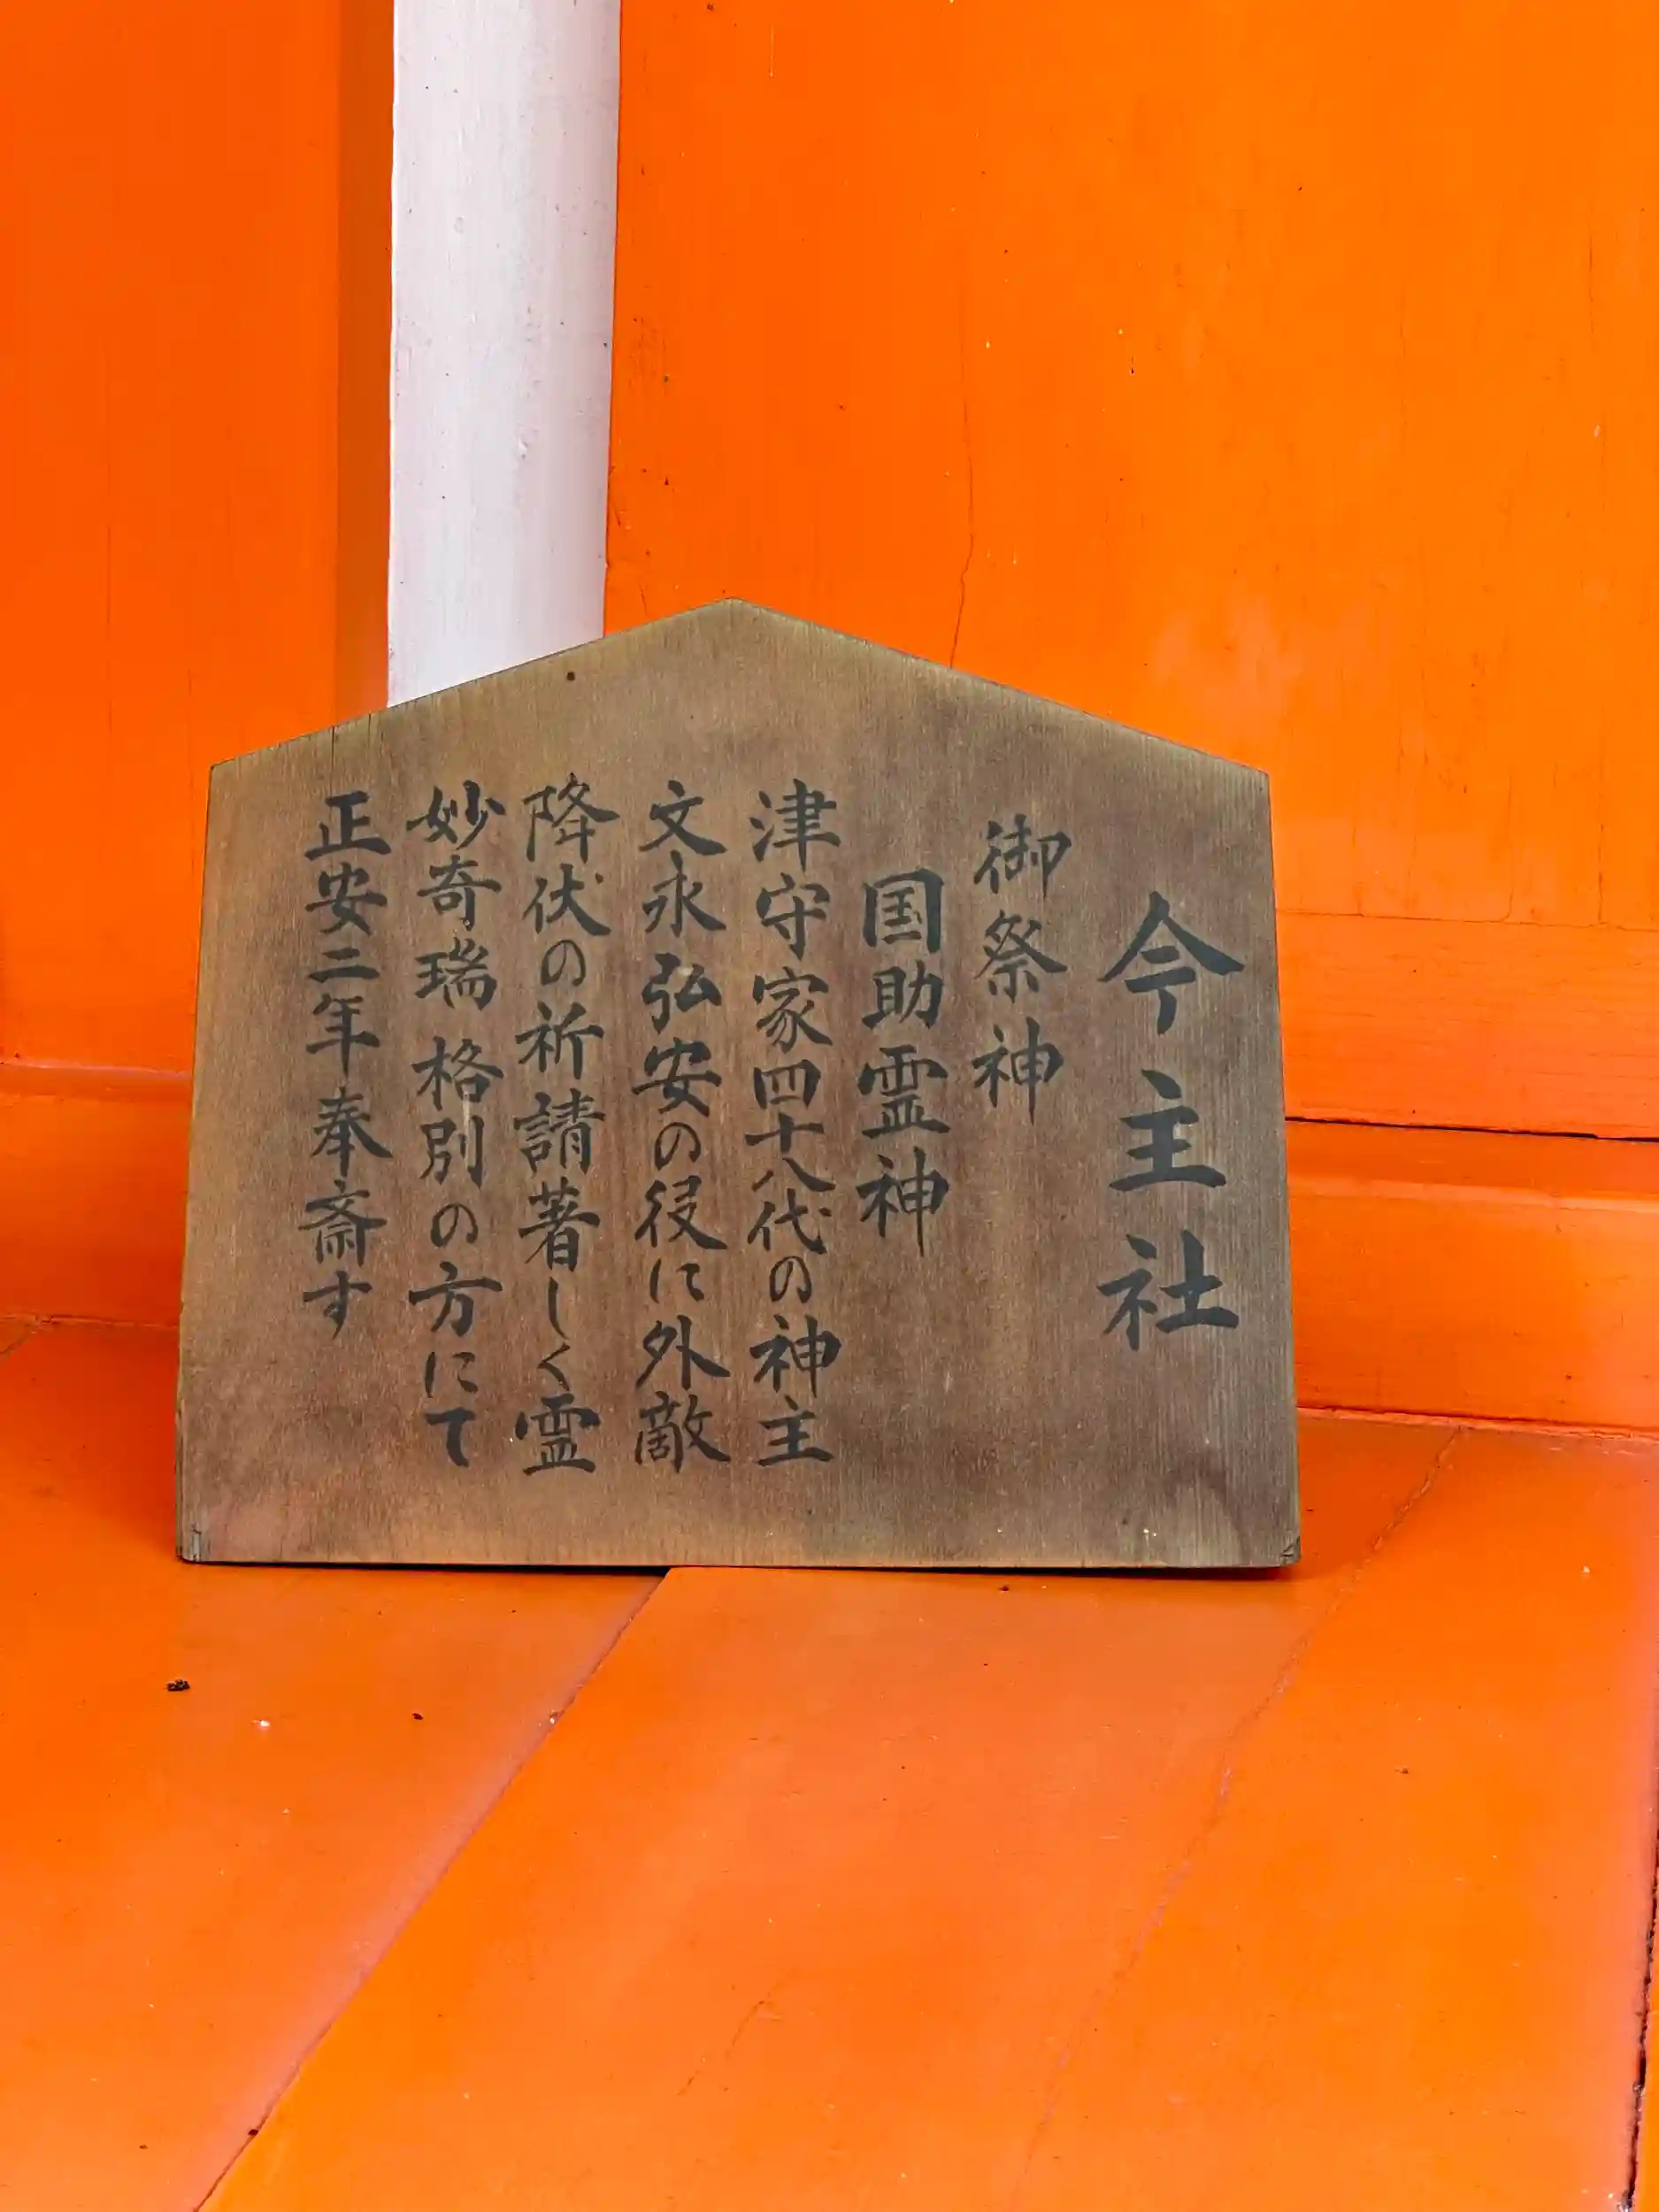 今主社
御祭神
国助霊神
津守家四十八代の神主
文永弘安の役に外敵
降伏の祈請著しく霊
妙奇瑞格別の方にて
正安二年奉斎す